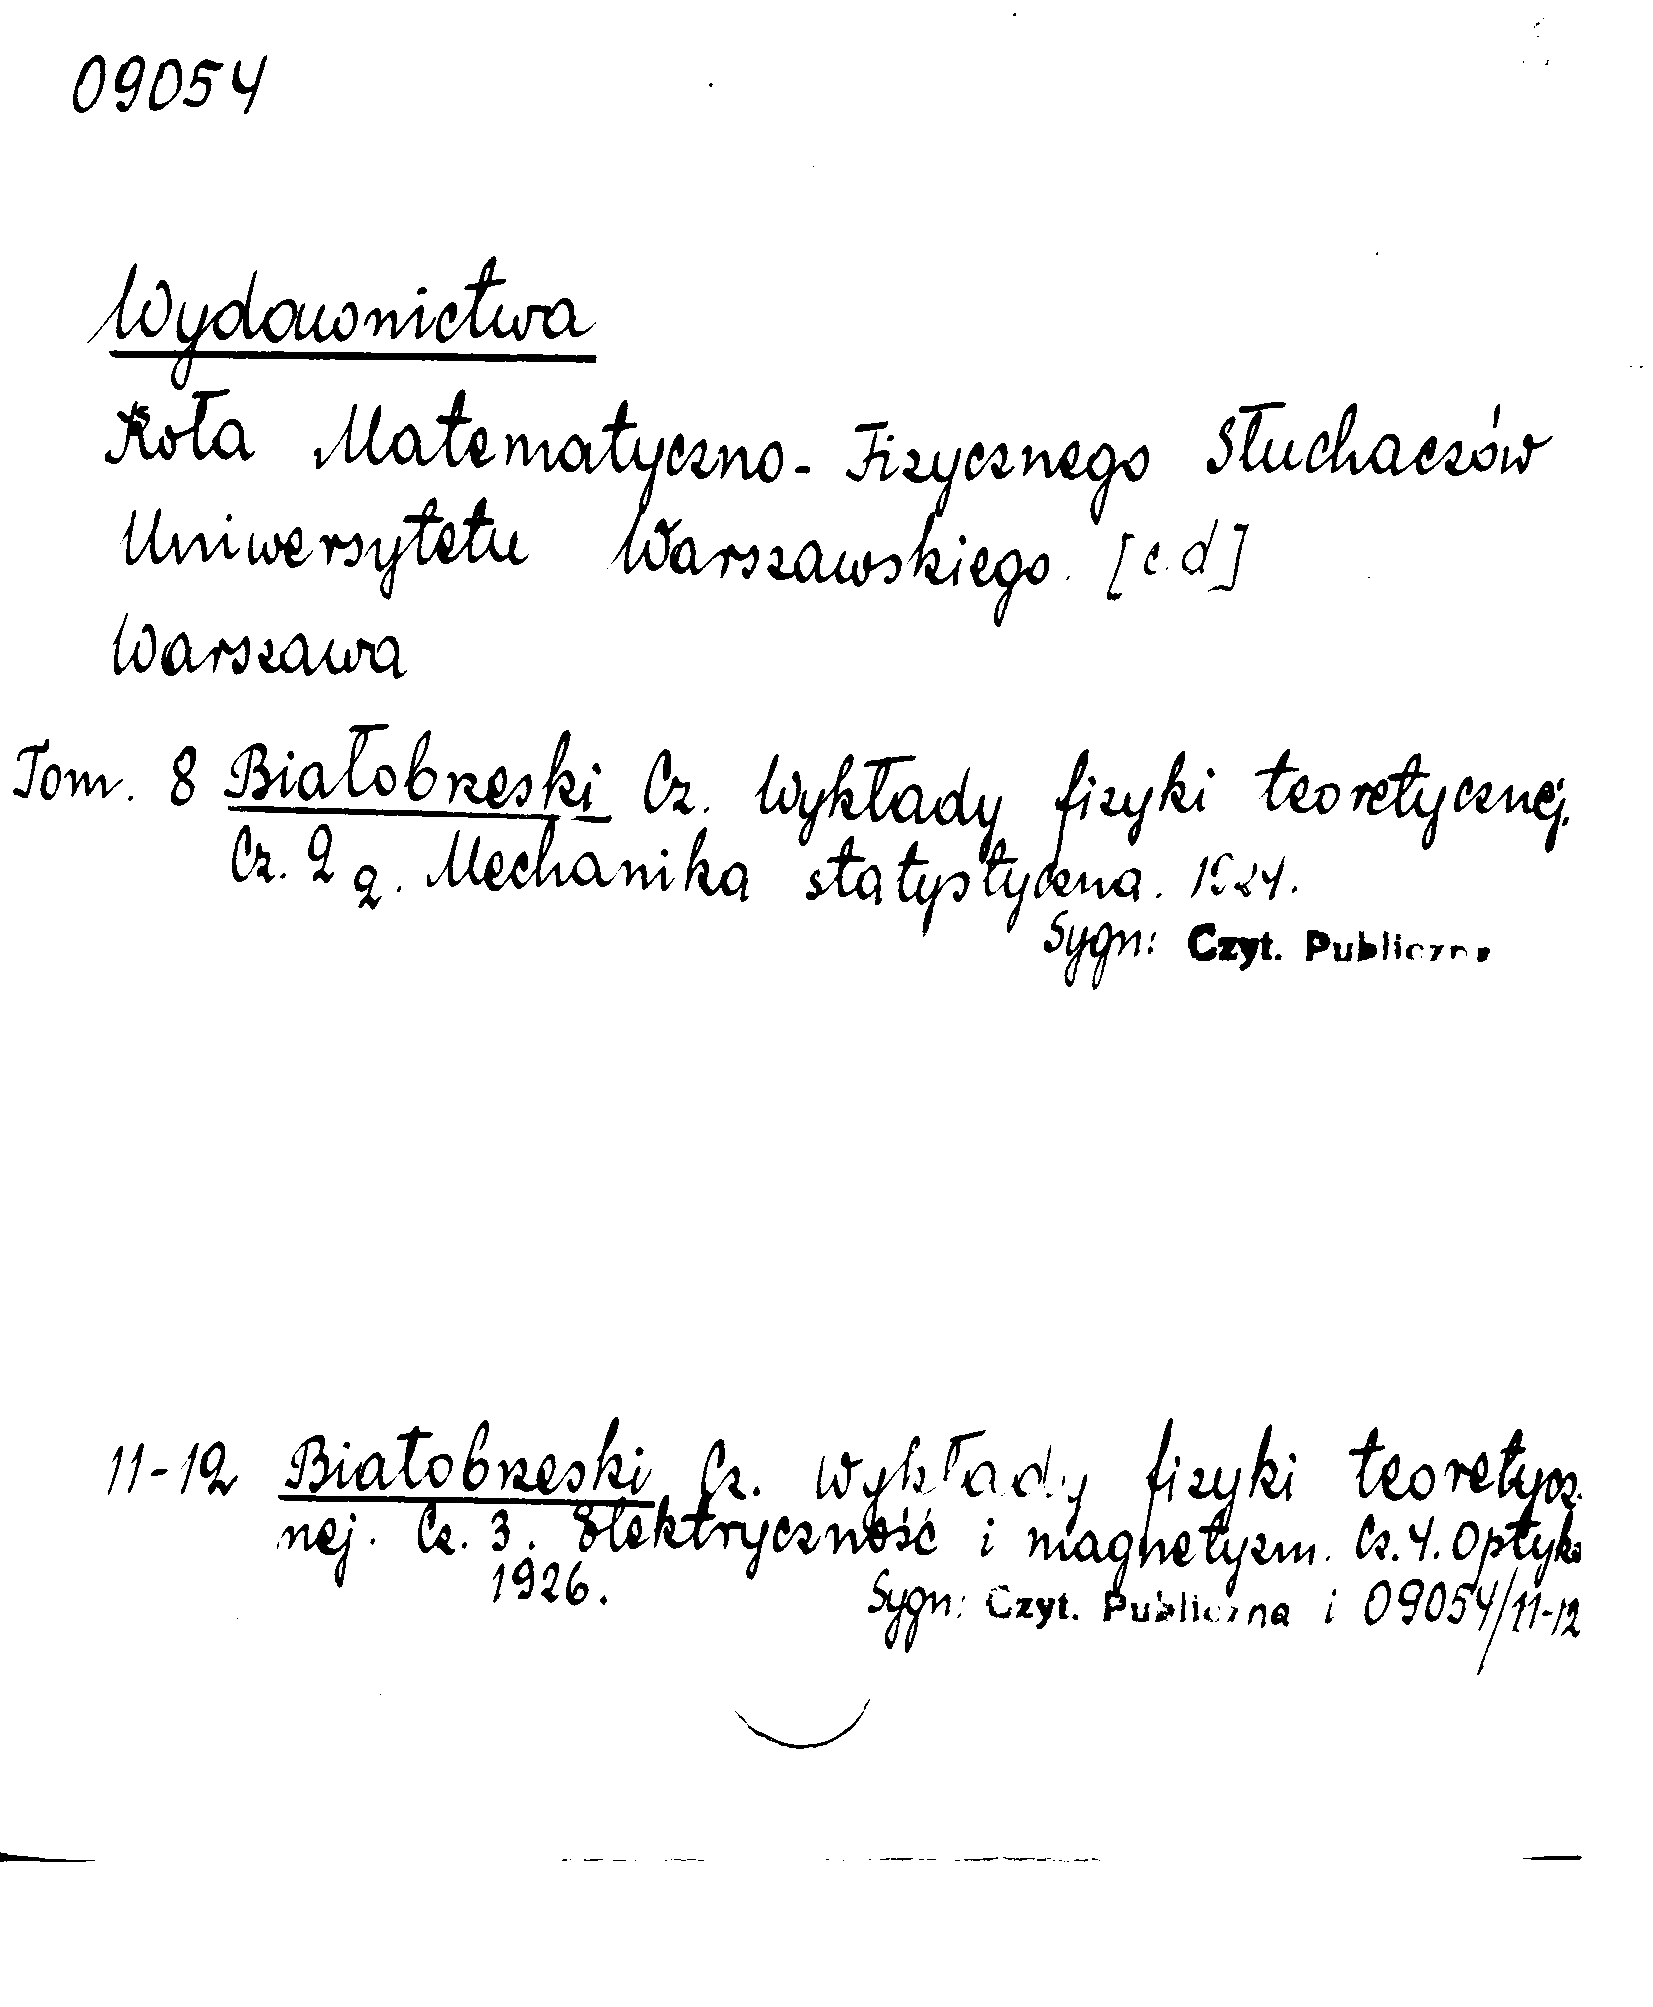 09054
Wydawnictwa
Koła Matematyczno-Fizycznego Słuchaczów
Uniwersytetu Warszawskiego. [c.d]
Warszawa
Tom. 8 Białobrzeski Cz. Wykłady fizyki teoretycznej.
Cz. 2 2. Mechanika statystyczna. 1924.
Sygn: Czyt. Publiczna
11-12 Białobrzeski Cz. Wykłady fizyki teoretycz.
nej. Cz. 3. Elektryczność i magnetyzm. Cz. 4. Optyka
1926. Sygn: Czyt. Publiczna i 09054/11-12